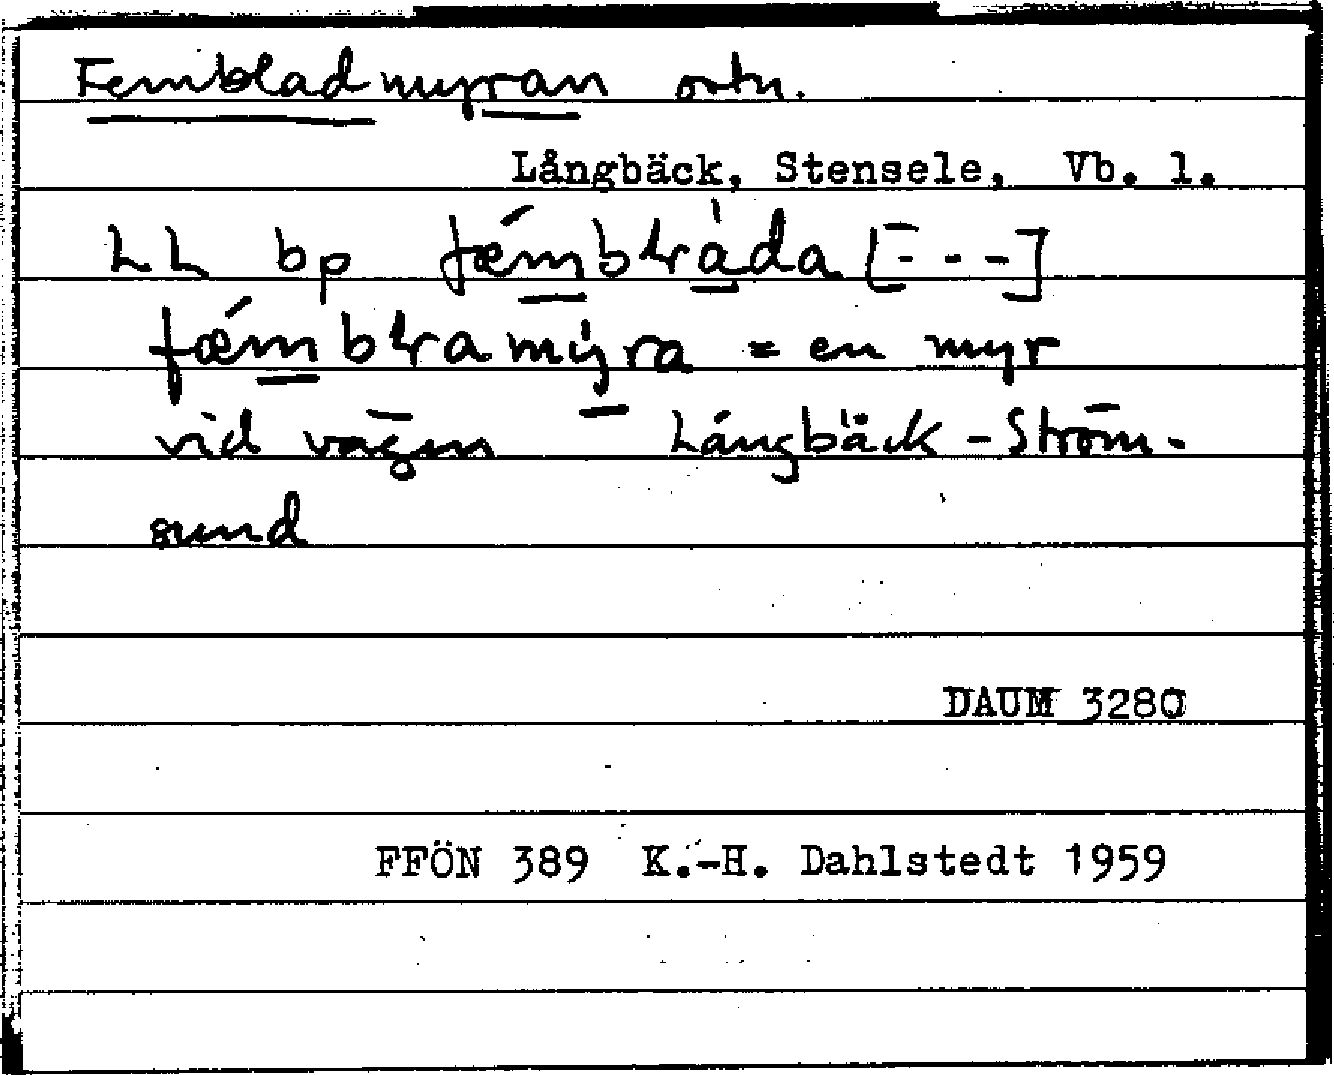 Fembladmyran ortn.
Långbäck, Stensele, Vb. l.
LL bp
= en myr
vid vägen Långbäck - Ström-
sund
DAUM 3280
FFÖN 389 K.-H. Dahlstedt 1959